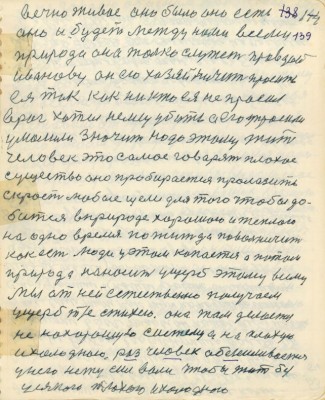 вечно живое оно было оно есть 138 144
оно и будеть между нами всеми 139
природа она только служет правдой
иванову он ею хозяйничит просить
ея так как никто ея не просил
враг хотел нему убить а его просили
умолили значит надо этому жить
человек это самое говорят плохое
существо оно пробирается пролазить
скрость любые щели для того чтобы до-
бится вприроде харошого и теплого
на одно время пожить да поволничить
как есть люди у этом капается а потом
природа наносит ущерб этому всему
Мы от ней естественно получаем
ущерб т/е стихею, она там делается
не нахорошую систему а на плохую
ихолодною, раз человек обезсиливается
унего нету сил воли чтобы жить бу
условного плохого ихолодного